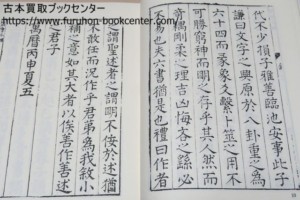 古本買取ブックセンター
http://www.furuhon-bookcenter.com/
代不少損子雅善臨池安事此子
謙曰文字之興原於八卦重之為
六十四而彖象爻繫卜筮之用不
可勝窮神而明之存乎其人然而
奇偶剛柔之理吉凶悔吝之繇必
不易也夫六書猶是也禮曰作者
之謂聖述者之謂明不佞於述猶
不敢任而況作乎君弟為我敘小
補之意如其大者以俟善作善述
之君子
萬曆丙申夏五